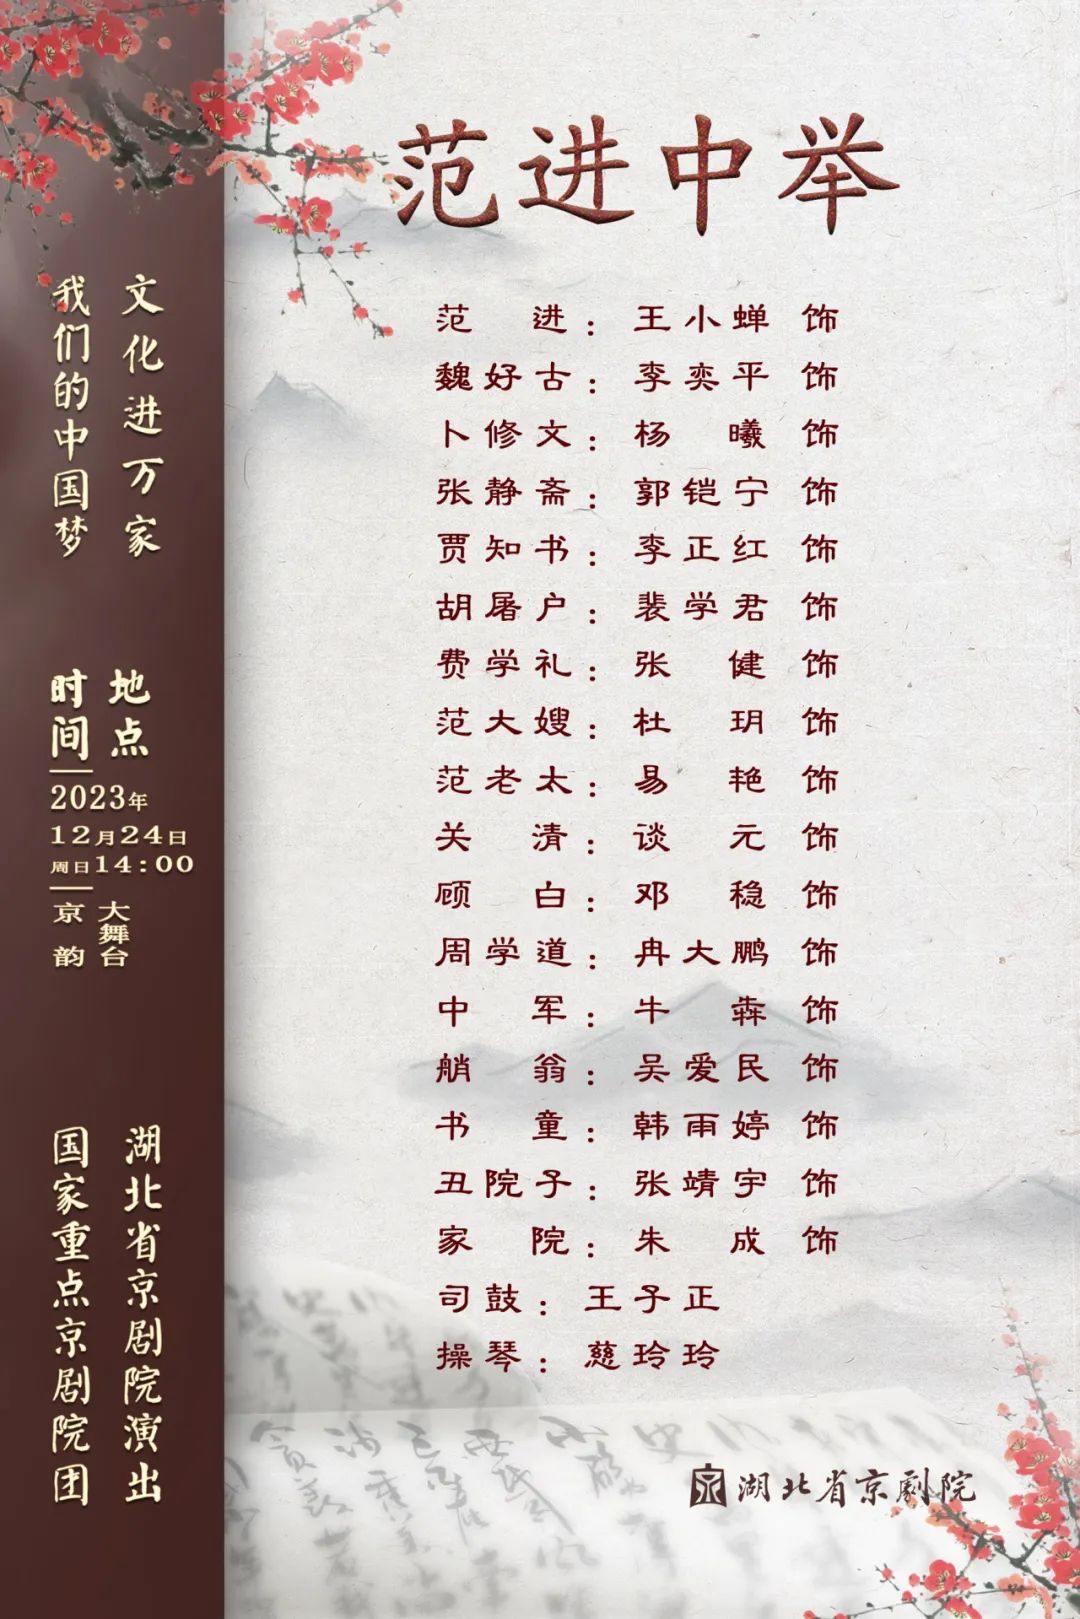 范进中举
范进：王小蝉 饰
魏好古：李奕平 饰
卜修文：杨曦 饰
张静斋：郭铠宁 饰
贾知书：李正红 饰
胡屠户：裴学君 饰
费学礼：张健 饰
范大嫂：杜玥 饰
范老太：易艳 饰
关清：谈元 饰
顾白：邓稳 饰
周学道：冉大鹏 饰
中军：牛犇 饰
艄翁：吴爱民 饰
书童：韩雨婷 饰
丑院子：张靖宇 饰
家院：朱成 饰
司鼓：王子正
操琴：慈玲玲
湖北省京剧院
文化进万家
我们的中国梦
地点
时间
2023年
12月24日
周日14:00
京韵
大舞台
湖北省京剧院演出
国家重点京剧院团